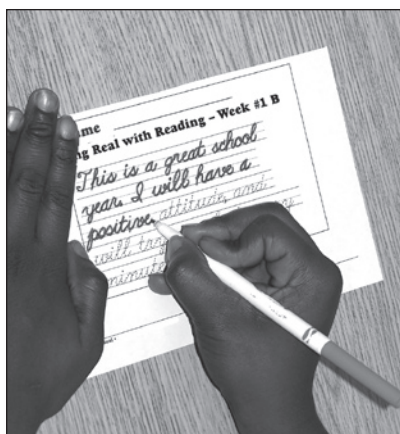 ame
ng Real with Reading – Week #1 B
This is a great school
year. I will have a
positive attitude and
will
minute